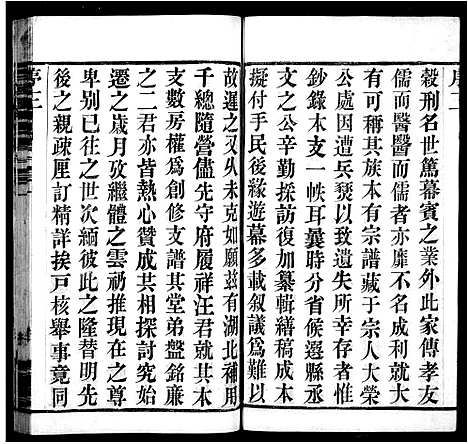 穀刑名世篤幕賓之業外此家傳孝友
儒而醫醫而儒者亦靡不成利就大
有可稱其族有宗譜藏于宗人大榮
公處因遭兵燹以致遺失所幸存者惟
鈔錄本支一帙耳曩時分省候選縣丞
文之公辛勤採訪復加纂輯繕稿成本
擬付手民後緣遊幕多載叙議爲難以
故遲之又久未克如願兹有湖北補用
千總隨營儘先守府履祥汪君就其本
支數房權爲創譜其堂弟盤銘廉
之二君亦皆熱心贊成其相中形神
遷之歲月攷繼體之雲礽推現在之尊
卑别已往之世次緬彼此之隆替明先
後之親疎厘訂精詳挨戸核舉事竟同